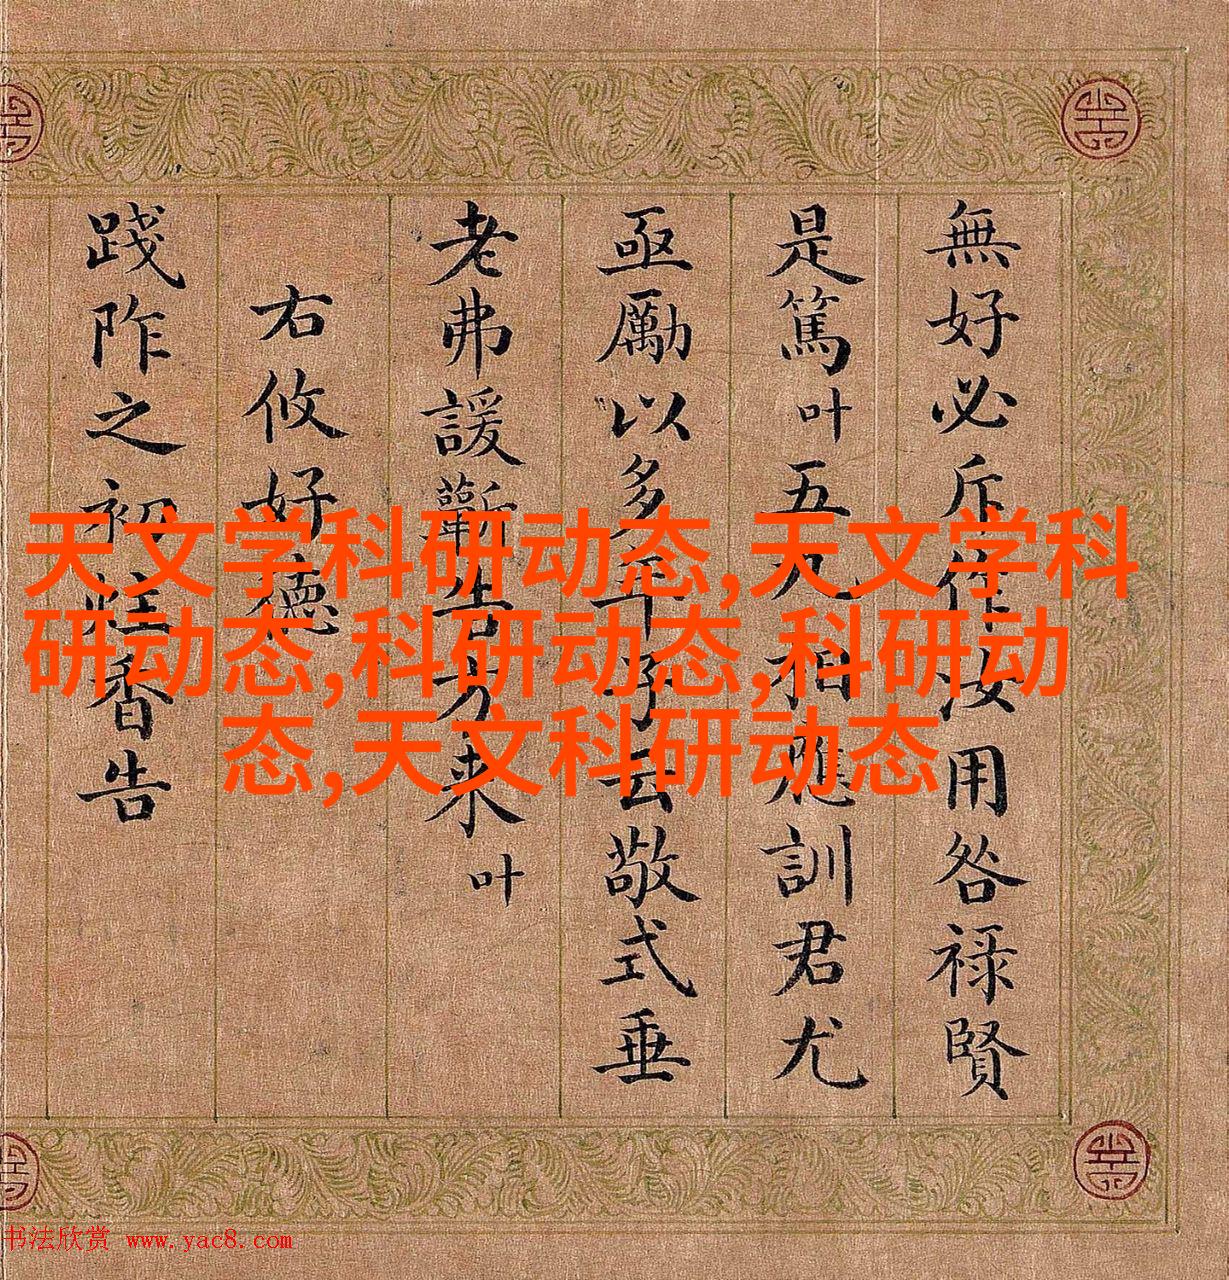 無好必斥作汝用咎祿賢
是篤叶五九相應訓君尤
亟勵以多年予云敬式垂
老弗諼蘄告方來叶
右攸好德
踐阼之初炷香告
天文学科研动态,天文学科
研动态,科研动态,科研动
态,天文科研动态
书法欣赏 www.yac8.com